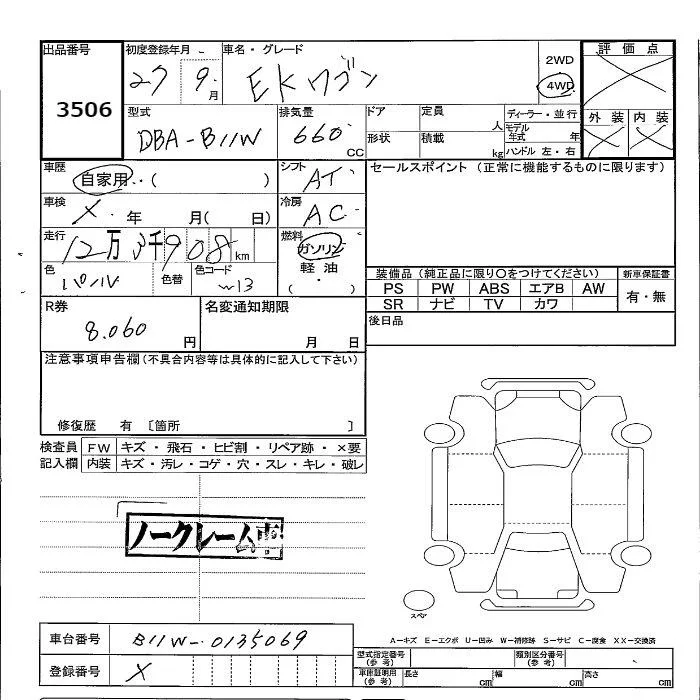 出品番号
3506
初度登録年月
27 9月
車名・グレード
EKワゴン
2WD
4WD
評価点
外装 内装
型式
DBA-B11W
排気量
660 CC
ドア
形状
定員 人
積載 kg
ディーラー・並行
モデル年式 年
ハンドル 左・右
車歴
自家用・・( )
シフト
AT
車検
X 年 月( 日)
冷房
AC
走行
12万3千908km
燃料
ガソリン
軽油
・
( )
色
パール
色替
色コード
W13
セールスポイント (正常に機能するものに限ります)
装備品 (純正品に限り○をつけてください)
新車保証書
PS PW ABS エアB AW
SR ナビ TV カワ
有・無
後日品
R券
8.060円
名変通知期限
月 日
注意事項申告欄 (不具合内容等は具体的に記入して下さい)
修復歴 有 〔箇所 〕
検査員
記入欄
FW キズ・飛石・ヒビ割・リペア跡・×要
内装 キズ・汚レ・コゲ・穴・スレ・キレ・破レ
ノークレーム車
スペア
A-キズ E-エクボ U-凹み W-補修跡 S-サビ C-腐食 XX-交換済
車台番号
B11W-0135069
登録番号
X
型式指定番号
(参考)
類別区分番号
(参考)
車庫証明用
(参考)
長さ cm
幅 cm
高さ cm